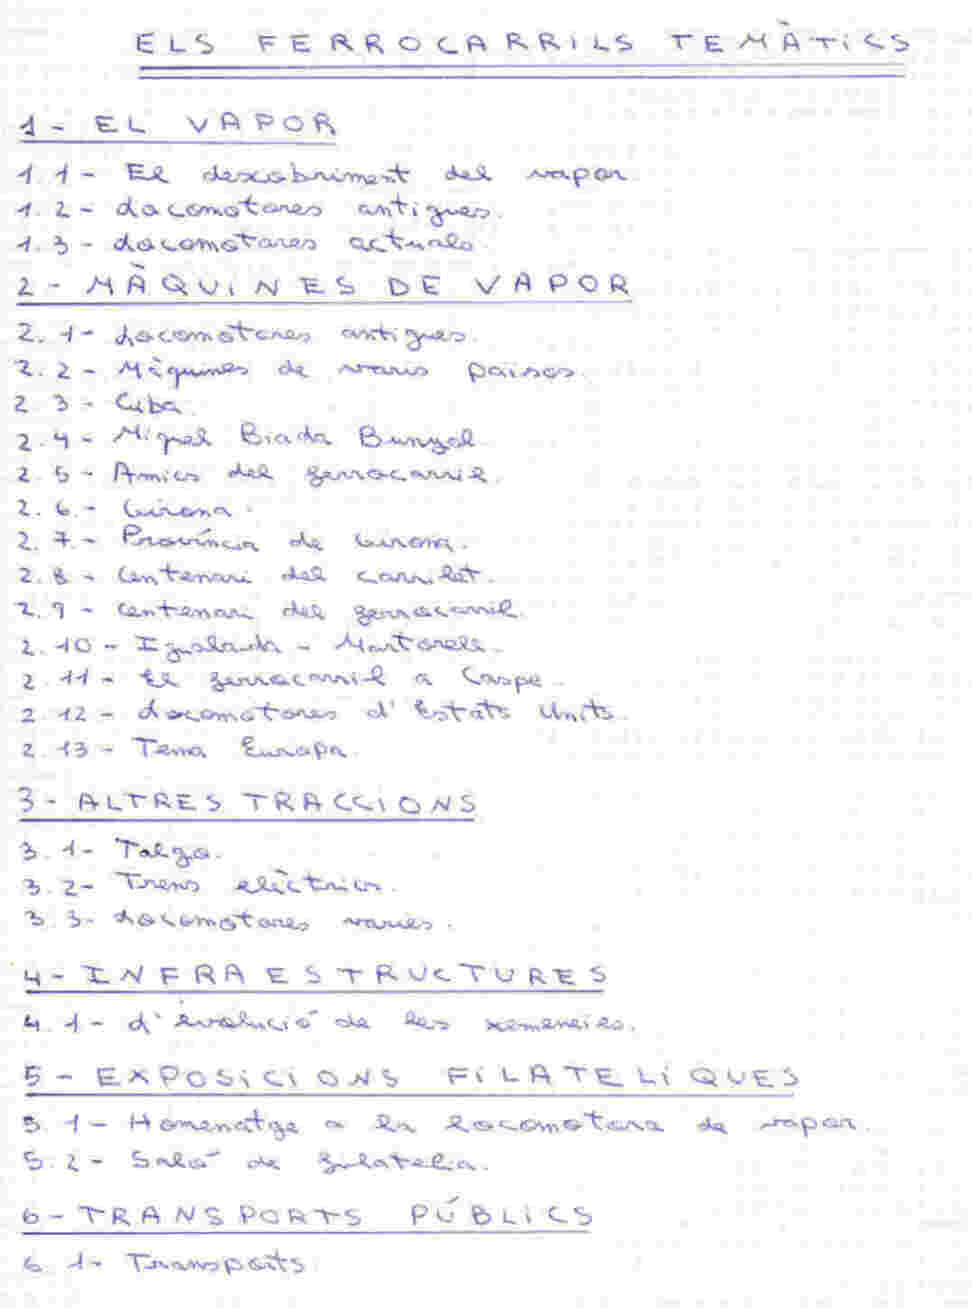 ELS FERROCARRILS TEMÀTICS
1- EL VAPOR
1.1- El descobriment del vapor.
1.2- Locomotores antigues.
1.3- Locomotores actuals.
2- MÀQUINES DE VAPOR
2.1- Locomotores antigues.
2.2- Màquines de varis països.
2.3- Cuba.
2.4- Miquel Biada Bunyol.
2.5- Amics del ferrocarril.
2.6.- Girona.
2.7.- Província de Girona.
2.8- Centenari del carrilet.
2.9- Centenari del ferrocarril.
2.10- Igualada - Martorell.
2.11- El ferrocarril a Caspe.
2.12- Locomotores d'Estats Units.
2.13- Tema Europa.
3- ALTRES TRACCIONS
3.1- Talgo.
3.2- Trens elèctrics.
3.3- Locomotores varies.
4- INFRAESTRUCTURES
4.1- L'evolució de les xemeneies.
5- EXPOSICIONS FILATELIQUES
5.1- Homenatge a la locomotora de vapor.
5.2- Saló de filatelia.
6- TRANSPORTS PÚBLICS
6.1- Transports.